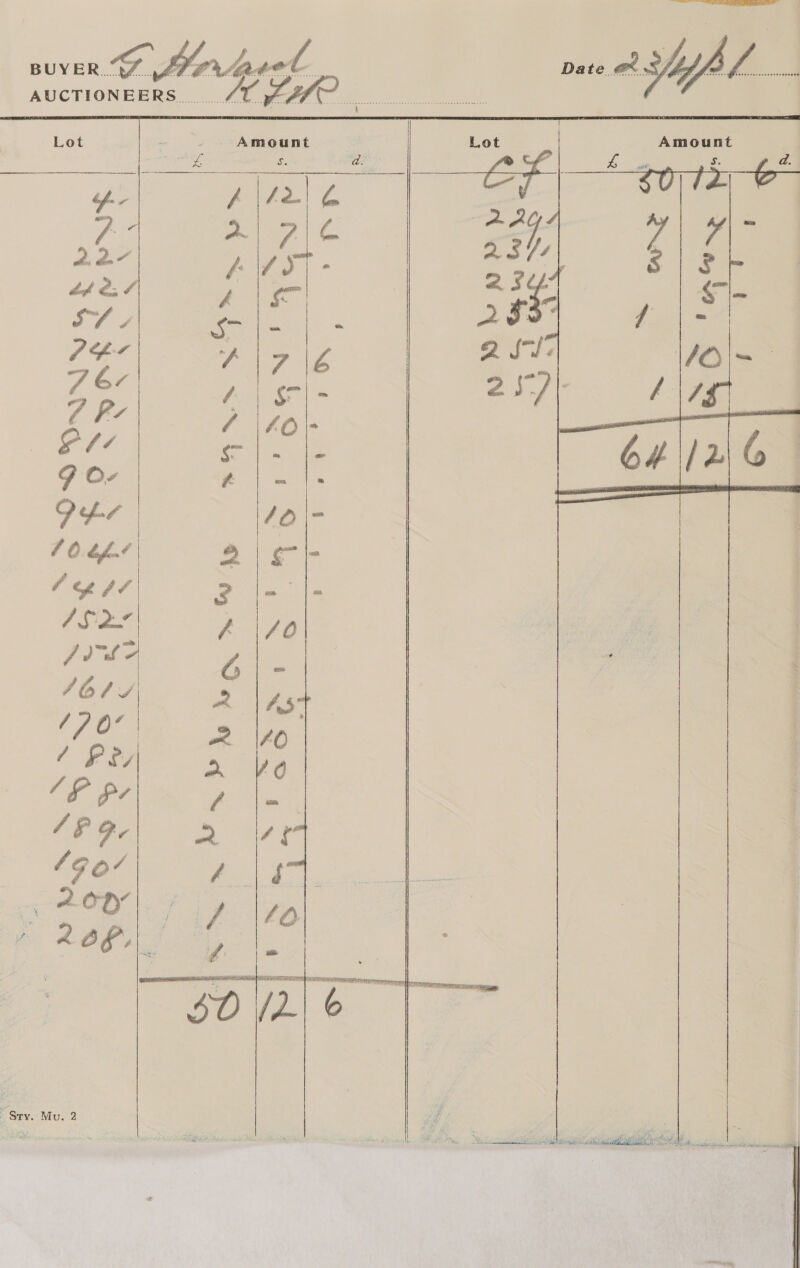 BUYER G
AUCTIONEERS
Date
Lot Amount
£ s. d.
4 1 12 6
7 2 7 6
22 1 15 -
42 1 5
51 5 - -
74 1 7 6
76 1 5 -
78 1 10 -
81 5 - -
90 1 - -
94 10 -
104 2 5 -
141 3 - -
152 1 10
155 6 -
161 2 15
170 2 10
182 2 10
188 1 -
189 2 15
190 1 5
200 1 10
208 1 -
50 12 6
Sty. Mu. 2
Lot Amount
£ s. d.
CF 50 12 6
229 7 7 -
231 3 3 -
234 5 -
253 1 -
255 10 -
257 - 1 15
64 12 6